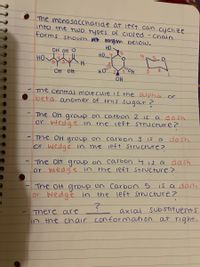 The monosaccharide at left can cyclize
into the two types of closed-chain
forms shown below.
OH OH O
HO
H
OH OH
HO
HO
O
OH
OH
O
- The central molecule is the alpha or
beta anomer of this sugar?
- The OH group on carbon 2 is a dash
or wedge in the left structure?
- The OH group on carbon 3 is a dash
or wedge in the left structure?
- The OH group on carbon 4 is a dash
or wedge in the left structure?
- The OH group on carbon 5 is a dash
or wedge in the left structure?
- There are ? axial substituents
in the chair conformation at right.